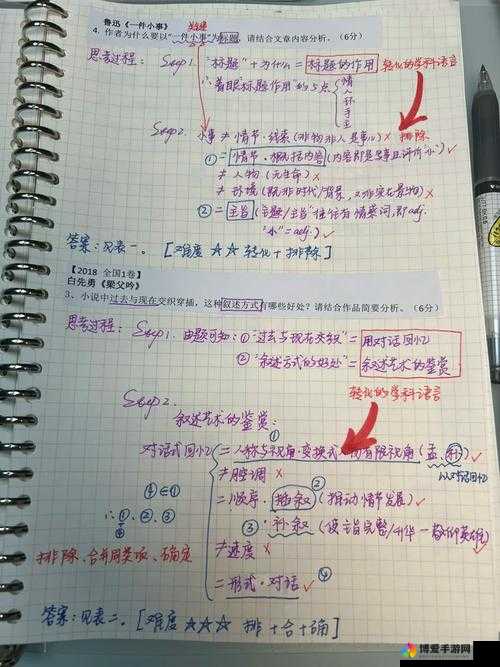 鲁迅《一件小事》 关键
4. 作者为什么要以"一件小事"为标题,请结合文章内容分析。(6分)
思考过程: Step 1. "标题"+为什么=标题的作用 转化的学科语言
∴着眼"标题作用"的5点 情 人 环 手 主
Step 2. 小事≠情节·线索(非物非人是事心)× 排除
①=情节·概括内容(内容即是写事且评价"小")✓
≠人物(无生命)×
≠环境(既非时代/背景,又非实在景物)×
②=主旨(主题/主旨"往往有情感词,即adj.
"小"=adj.)✓
答案:见表一。[难度☆☆ 转化+排除]
【2018 全国1卷】
白先勇《梁父吟》
3. 小说中过去与现在交织穿插,这种叙述方式有哪些好处?请结合作品简要分析。(6分)
思考过程: Step 1. 由题可知:①"过去与现在交织"=用对话回忆
②"叙述方式的好处"=叙述艺术的鉴赏
转化的学科语言
Step 2.
叙述艺术的鉴赏:
对话式回忆 =人称与视角·变换式 有限视角(孟,朴)✓
以对话回忆
≠腔调×
④∈① =顺序·插叙(推动情节发展)✓
∴①、②、③ ③·补叙(使主旨完整/升华—敬仰英雄)✓
≠速度×
排除、合并同类项、确定
=形式·对话✓ ④
答案:见表二。[难度☆☆☆ 排+合+确]
博爱手游网